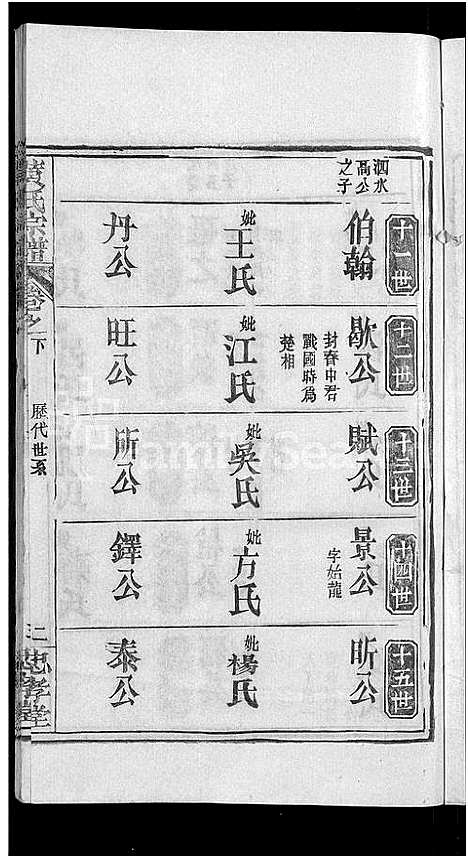 十一世
泗水
高公
之子
伯翰
妣王氏
丹公
十二世
歇公
封春申君
戰國時爲
楚相
妣江氏
旺公
十三世
賦公
妣吳氏
所公
十四世
景公
字始龍
妣方氏
鐸公
十五世
昕公
妣楊氏
泰公
黄氏宗譜
卷之下
歷代世系
二
忠孝堂